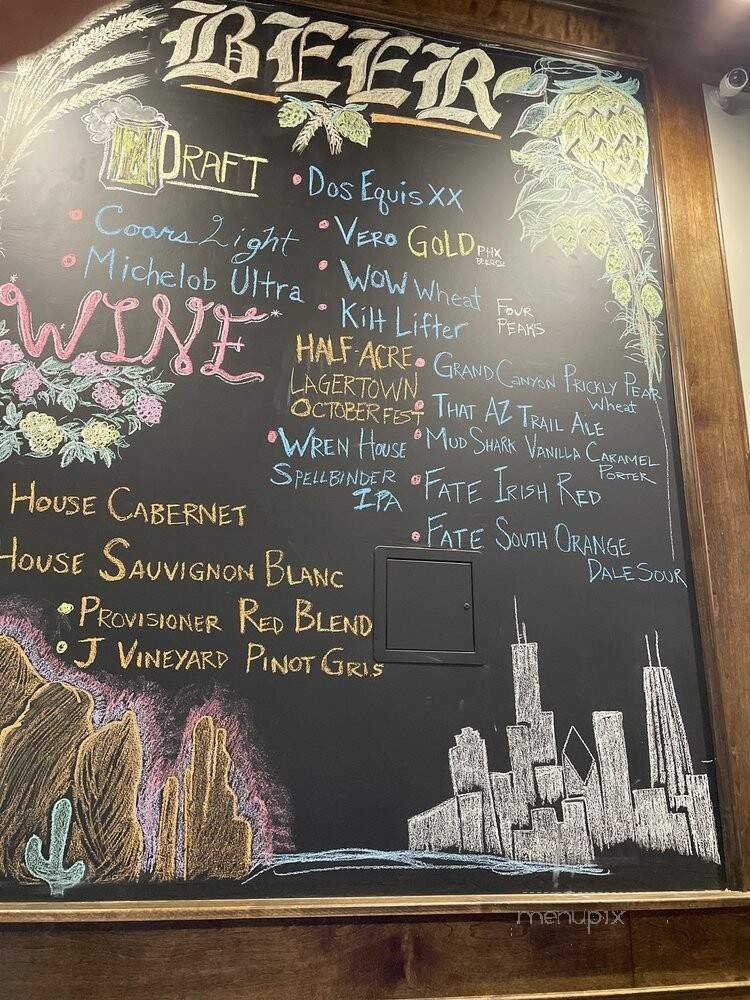 BEER
DRAFT
Coors Light
Michelob Ultra
Dos Equis XX
Vero GOLD PHX
BEER CO
WOW Wheat
Kilt Lifter
FOUR
PEAKS
HALF-ACRE
LAGERTOWN
OCTOBERFEST
WREN HOUSE
SPELLBINDER
IPA
GRAND CANYON PRICKLY PEAR
Wheat
THAT AZ TRAIL ALE
MUD SHARK VANILLA CARAMEL
PORTER
FATE IRISH RED
FATE SOUTH ORANGE
DALE SOUR
WINE
HOUSE CABERNET
HOUSE SAUVIGNON BLANC
PROVISIONER RED BLEND
J VINEYARD PINOT GRIS
menupix